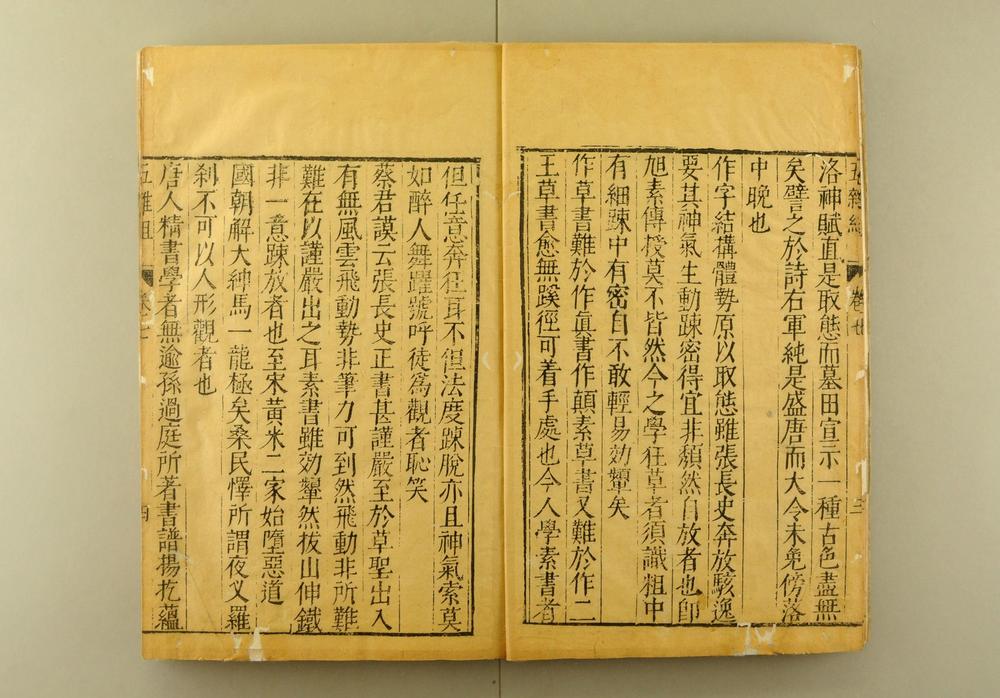 五雜組 卷七 三
洛神賦直是取態而墓田宣示一種古色盡無
矣譬之於詩右軍純是盛唐而大令未免傍落
中晚也
作字結構體勢原以取態雖張長史奔放駭逸
要其神氣生動疎密得宜非頹然自放者也即
旭素傳授莫不皆然今之學狂草者須識粗中
有細疎中有密自不敢輕易効顰矣
作草書難於作眞書作顛素草書又難於作二
王草書愈無蹊徑可着手處也今人學素書者
但任意奔狂耳不但法度踈脫亦且神氣索莫
如醉人舞躍號呼徒爲觀者恥笑
蔡君謨云張長史正書甚謹嚴至於草聖出入
有無風雲飛動勢非筆力可到然飛動非所難
難在以謹嚴出之耳素書雖効顰然拔山伸鐵
非一意踈放者也至宋黃米二家始墮惡道
國朝解大紳馬一龍極矣桑民懌所謂夜叉羅
刹不可以人形觀者也
唐人精書學者無逾孫過庭所著書譜揚扢蘊
五雜組 卷七 四